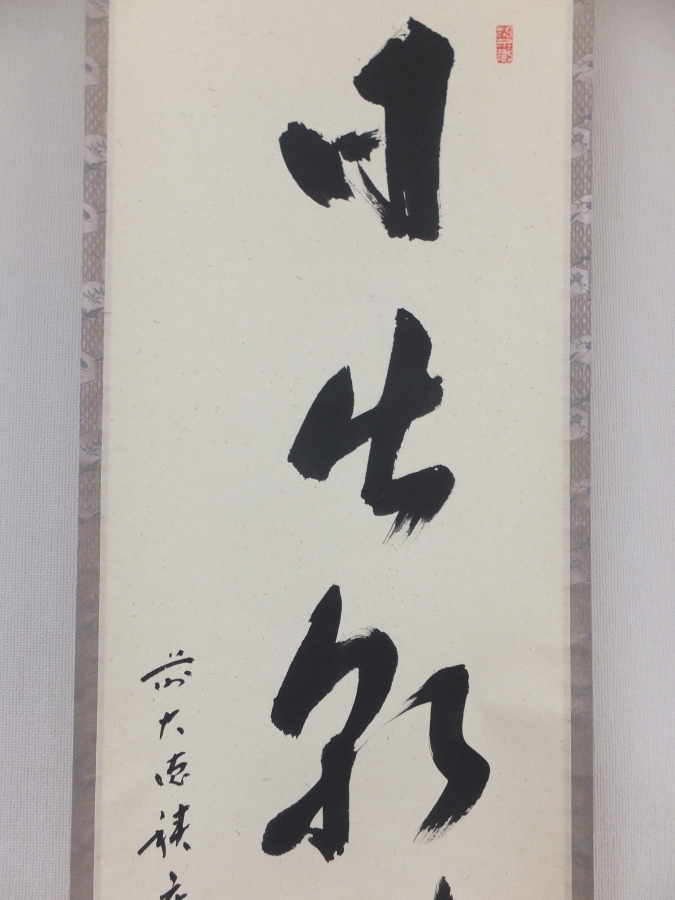 日出乾
前大徳積